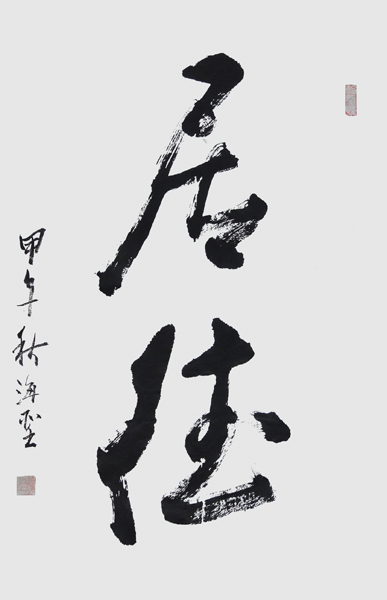 居德
甲午秋海